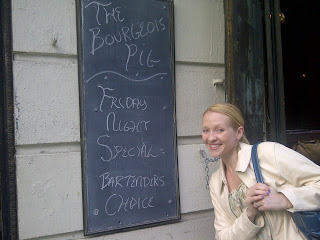 THE
BOURGEOIS
PIG
FRIDAY
NIGHT
SPECIAL =
BARTENDERS
CHOICE